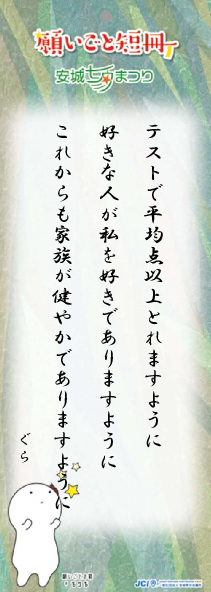 願いごと短冊
安城七夕まつり
テストで平均点以上とれますように
好きな人が私を好きでありますように
これからも家族が健やかでありますように
ぐら
JCI